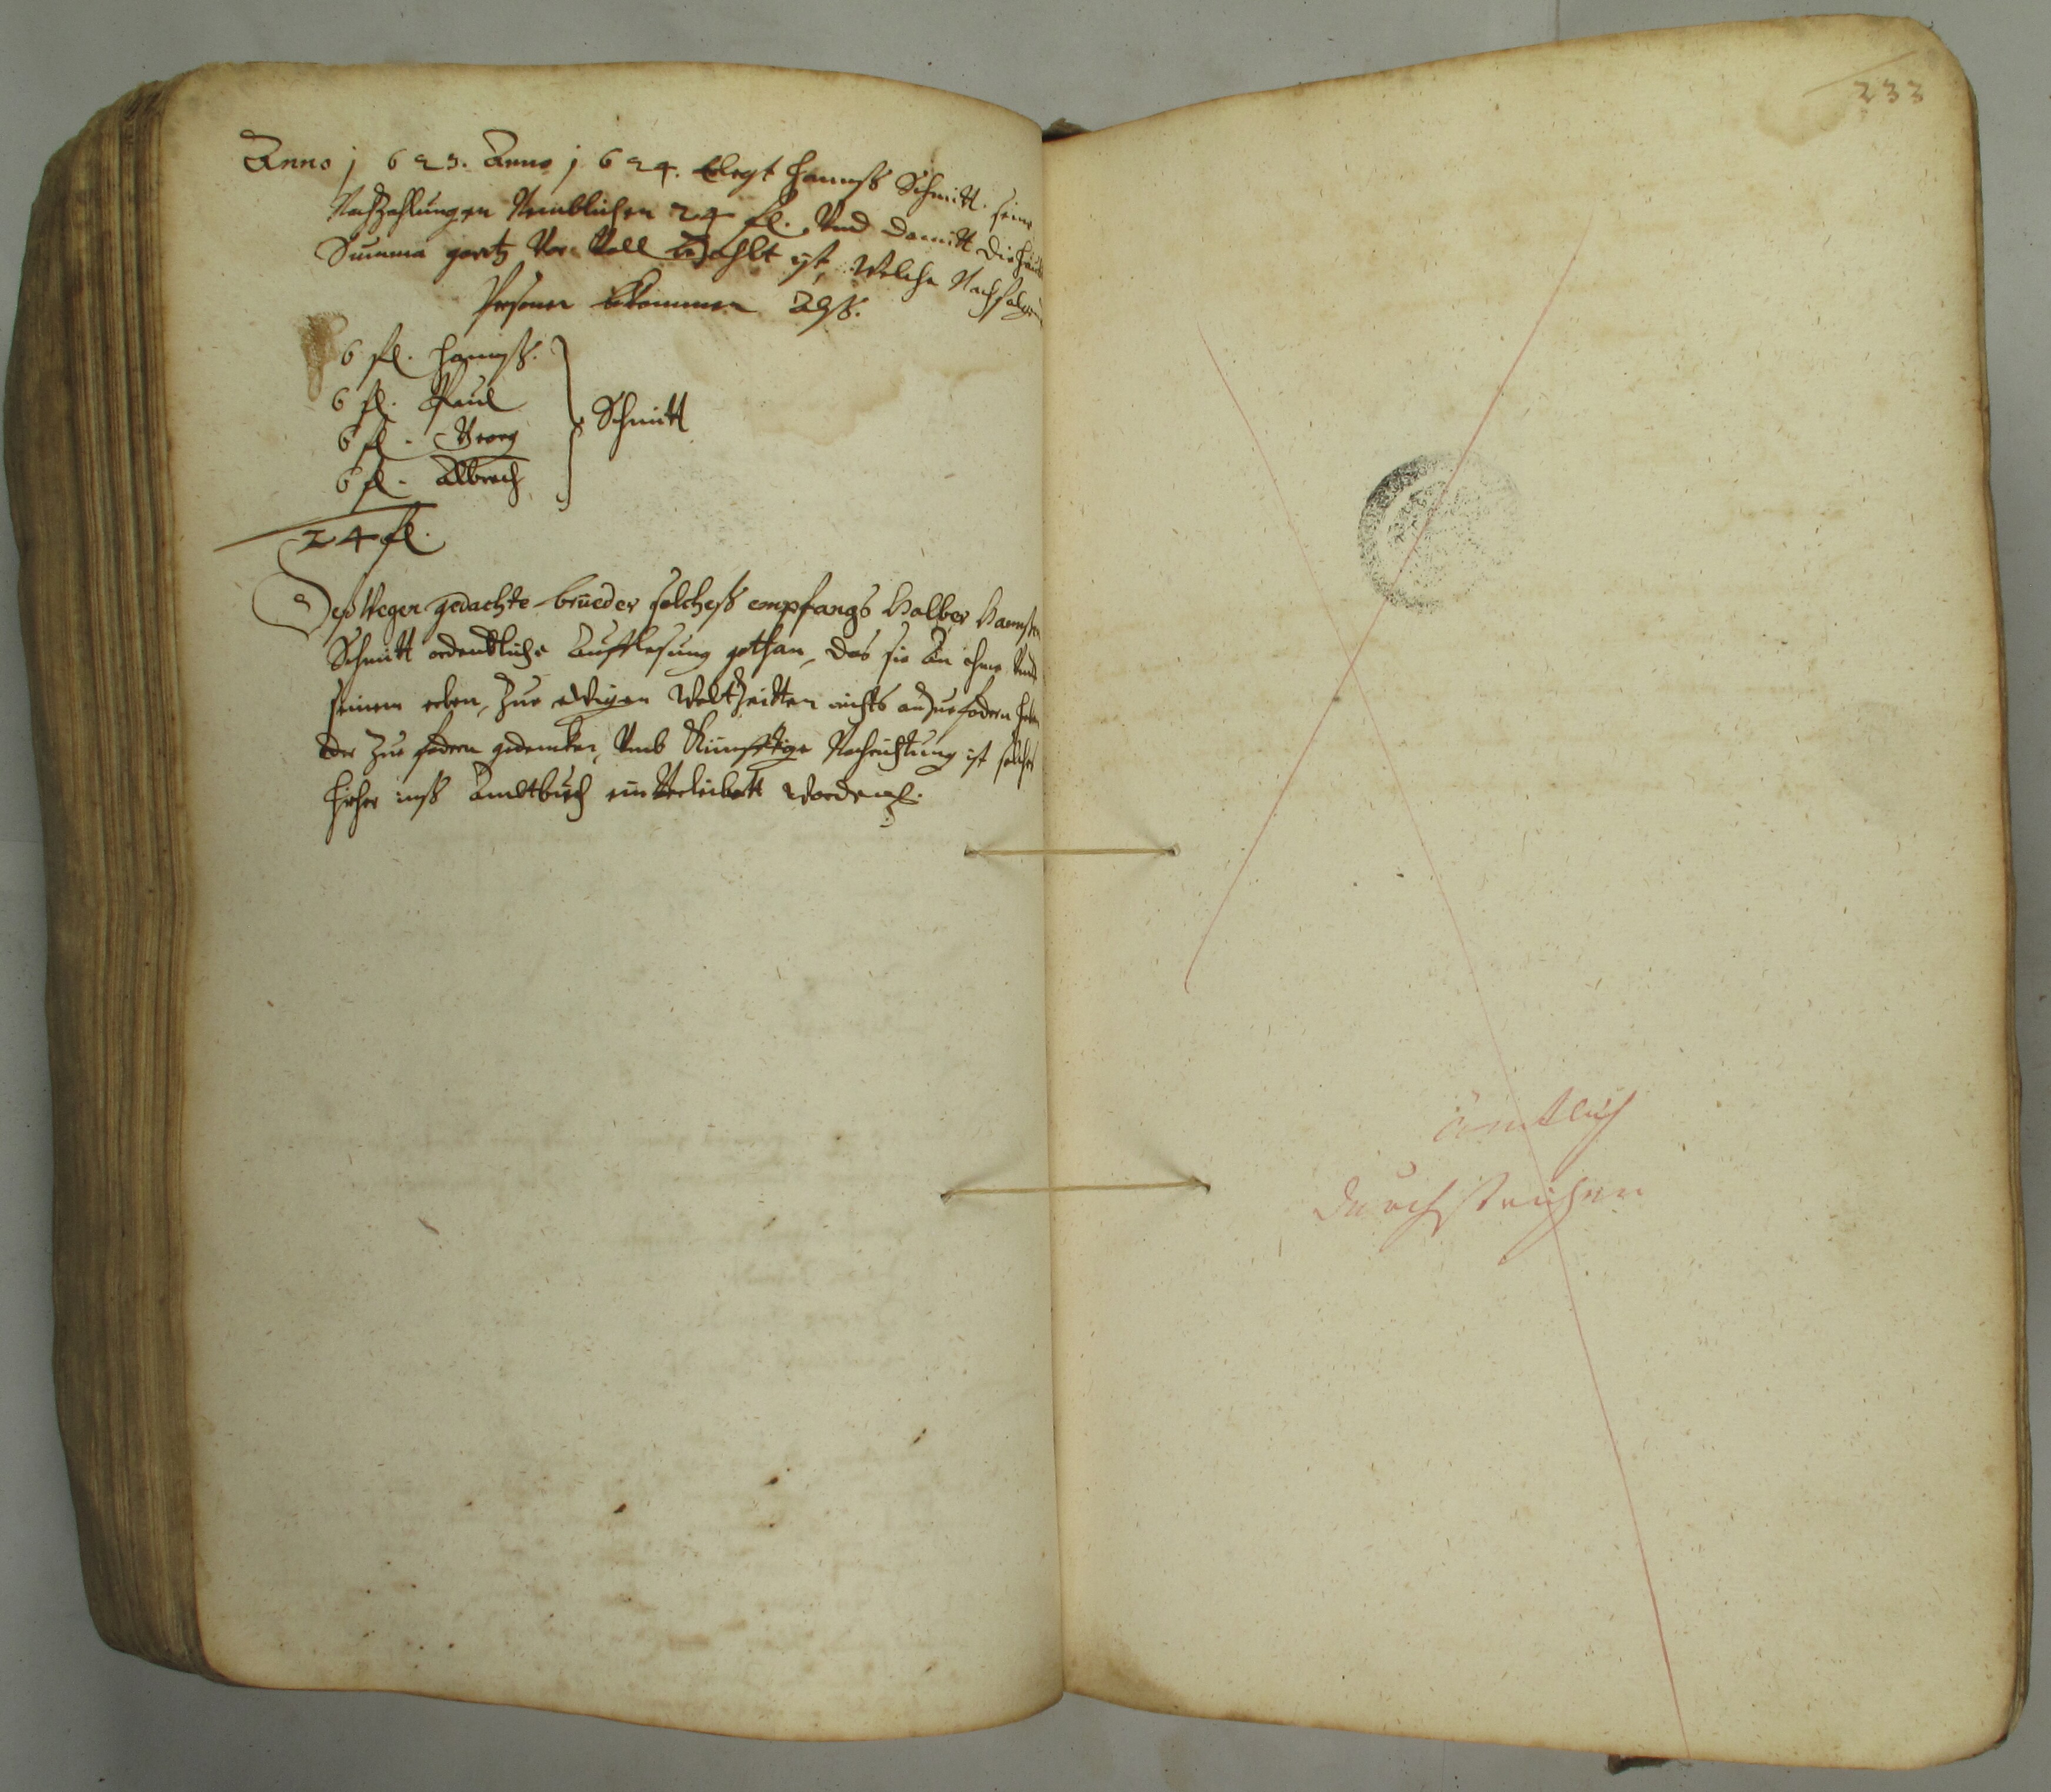 Anno j 623. Anno j 624. Elegt Hannß Schmitt seine
Nachzahlungen Nemblichen 24 fl. Vnd damitt die haubt
Summa gantz Vor Voll bezahlt ist, Welche Nachfolgende
Persone bekommen Alß.
6 fl. Hannß.
6 fl. Paul
6 fl. Georg
6 fl. Albrech
Schmitt
24 fl.
Deß Wegen gedachte brüeder solcheß empfangs Halber Hannßen
Schmitt ordentliche Aufflesung gethan, das sie An ihme Vnd
seinem erben, Zue ewigen Weltzeitten nichts anzuefodern haben
oder Zue fodern gedencken, Vmb Künfftige Nachrichtung ist solches
hieher inß Ambtbuch ein Verleibett worden.
233
ämtlich
durchstrichen